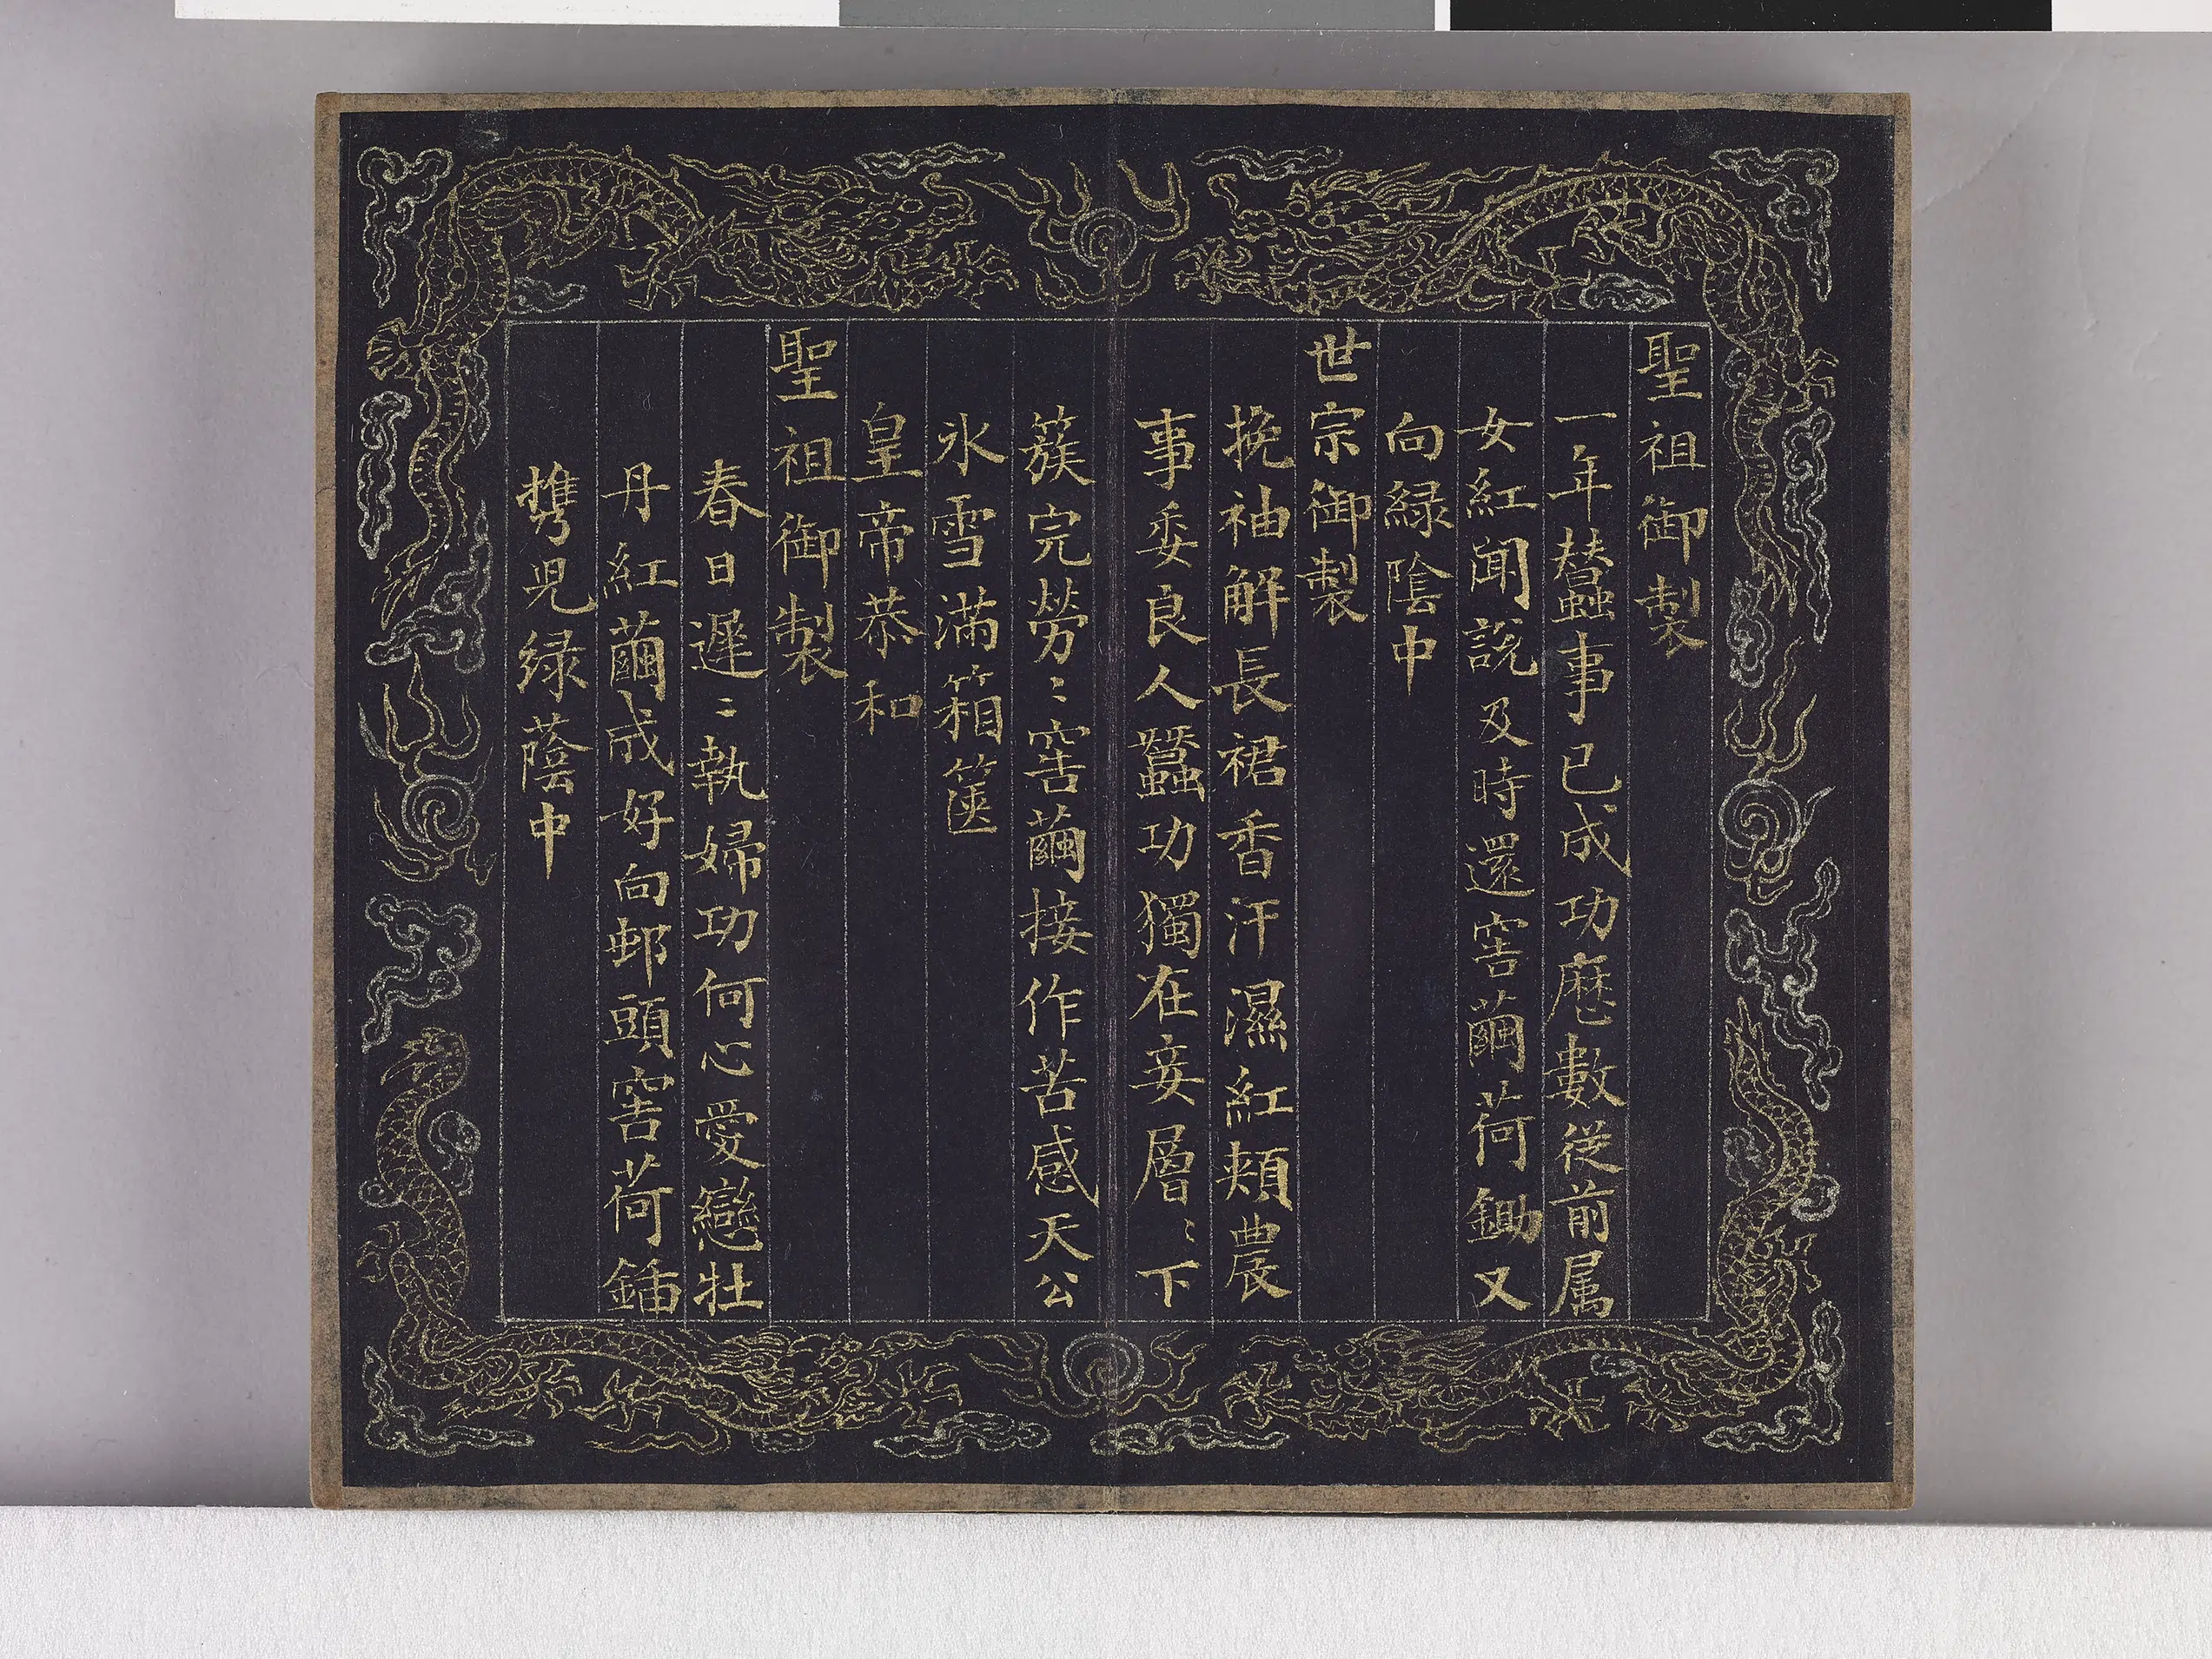 聖祖御製
一年蠶事已成功歷數從前属
女紅聞説及時還窖繭荷鋤又
向綠陰中
世宗御製
挽袖解長裙香汗濕紅頰農
事委良人蠶功獨在妾層〻下
簇完勞〻窖繭接作苦感天公
氷雪滿箱篋
皇帝恭和
聖祖御製
春日遲〻執婦功何心愛戀牡
丹紅繭成好向邨頭窖荷鍤
携児緑蔭中